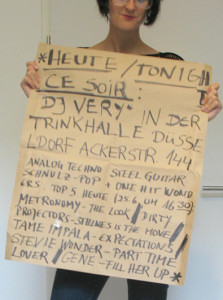 *HEUTE/TONIGH
CE SOIR:
DJ VERY* IN DER
TRINKHALLE DÜSSE
LDORF ACKERSTR. 144
ANALOG TECHNO STEEL GUITAR
SCHNULZ-POP + ONE HIT WOND
ERS. TOP 5 HEUTE (25.6. UM 16:30):
METRONOMY - THE LOOK / DIRTY
PROJECTORS - STILLNESS IS THE MOVE /
TAME IMPALA - EXPECTATIONS
STEVIE WONDER - PART TIME
LOVER / GENE - FILL HER UP *